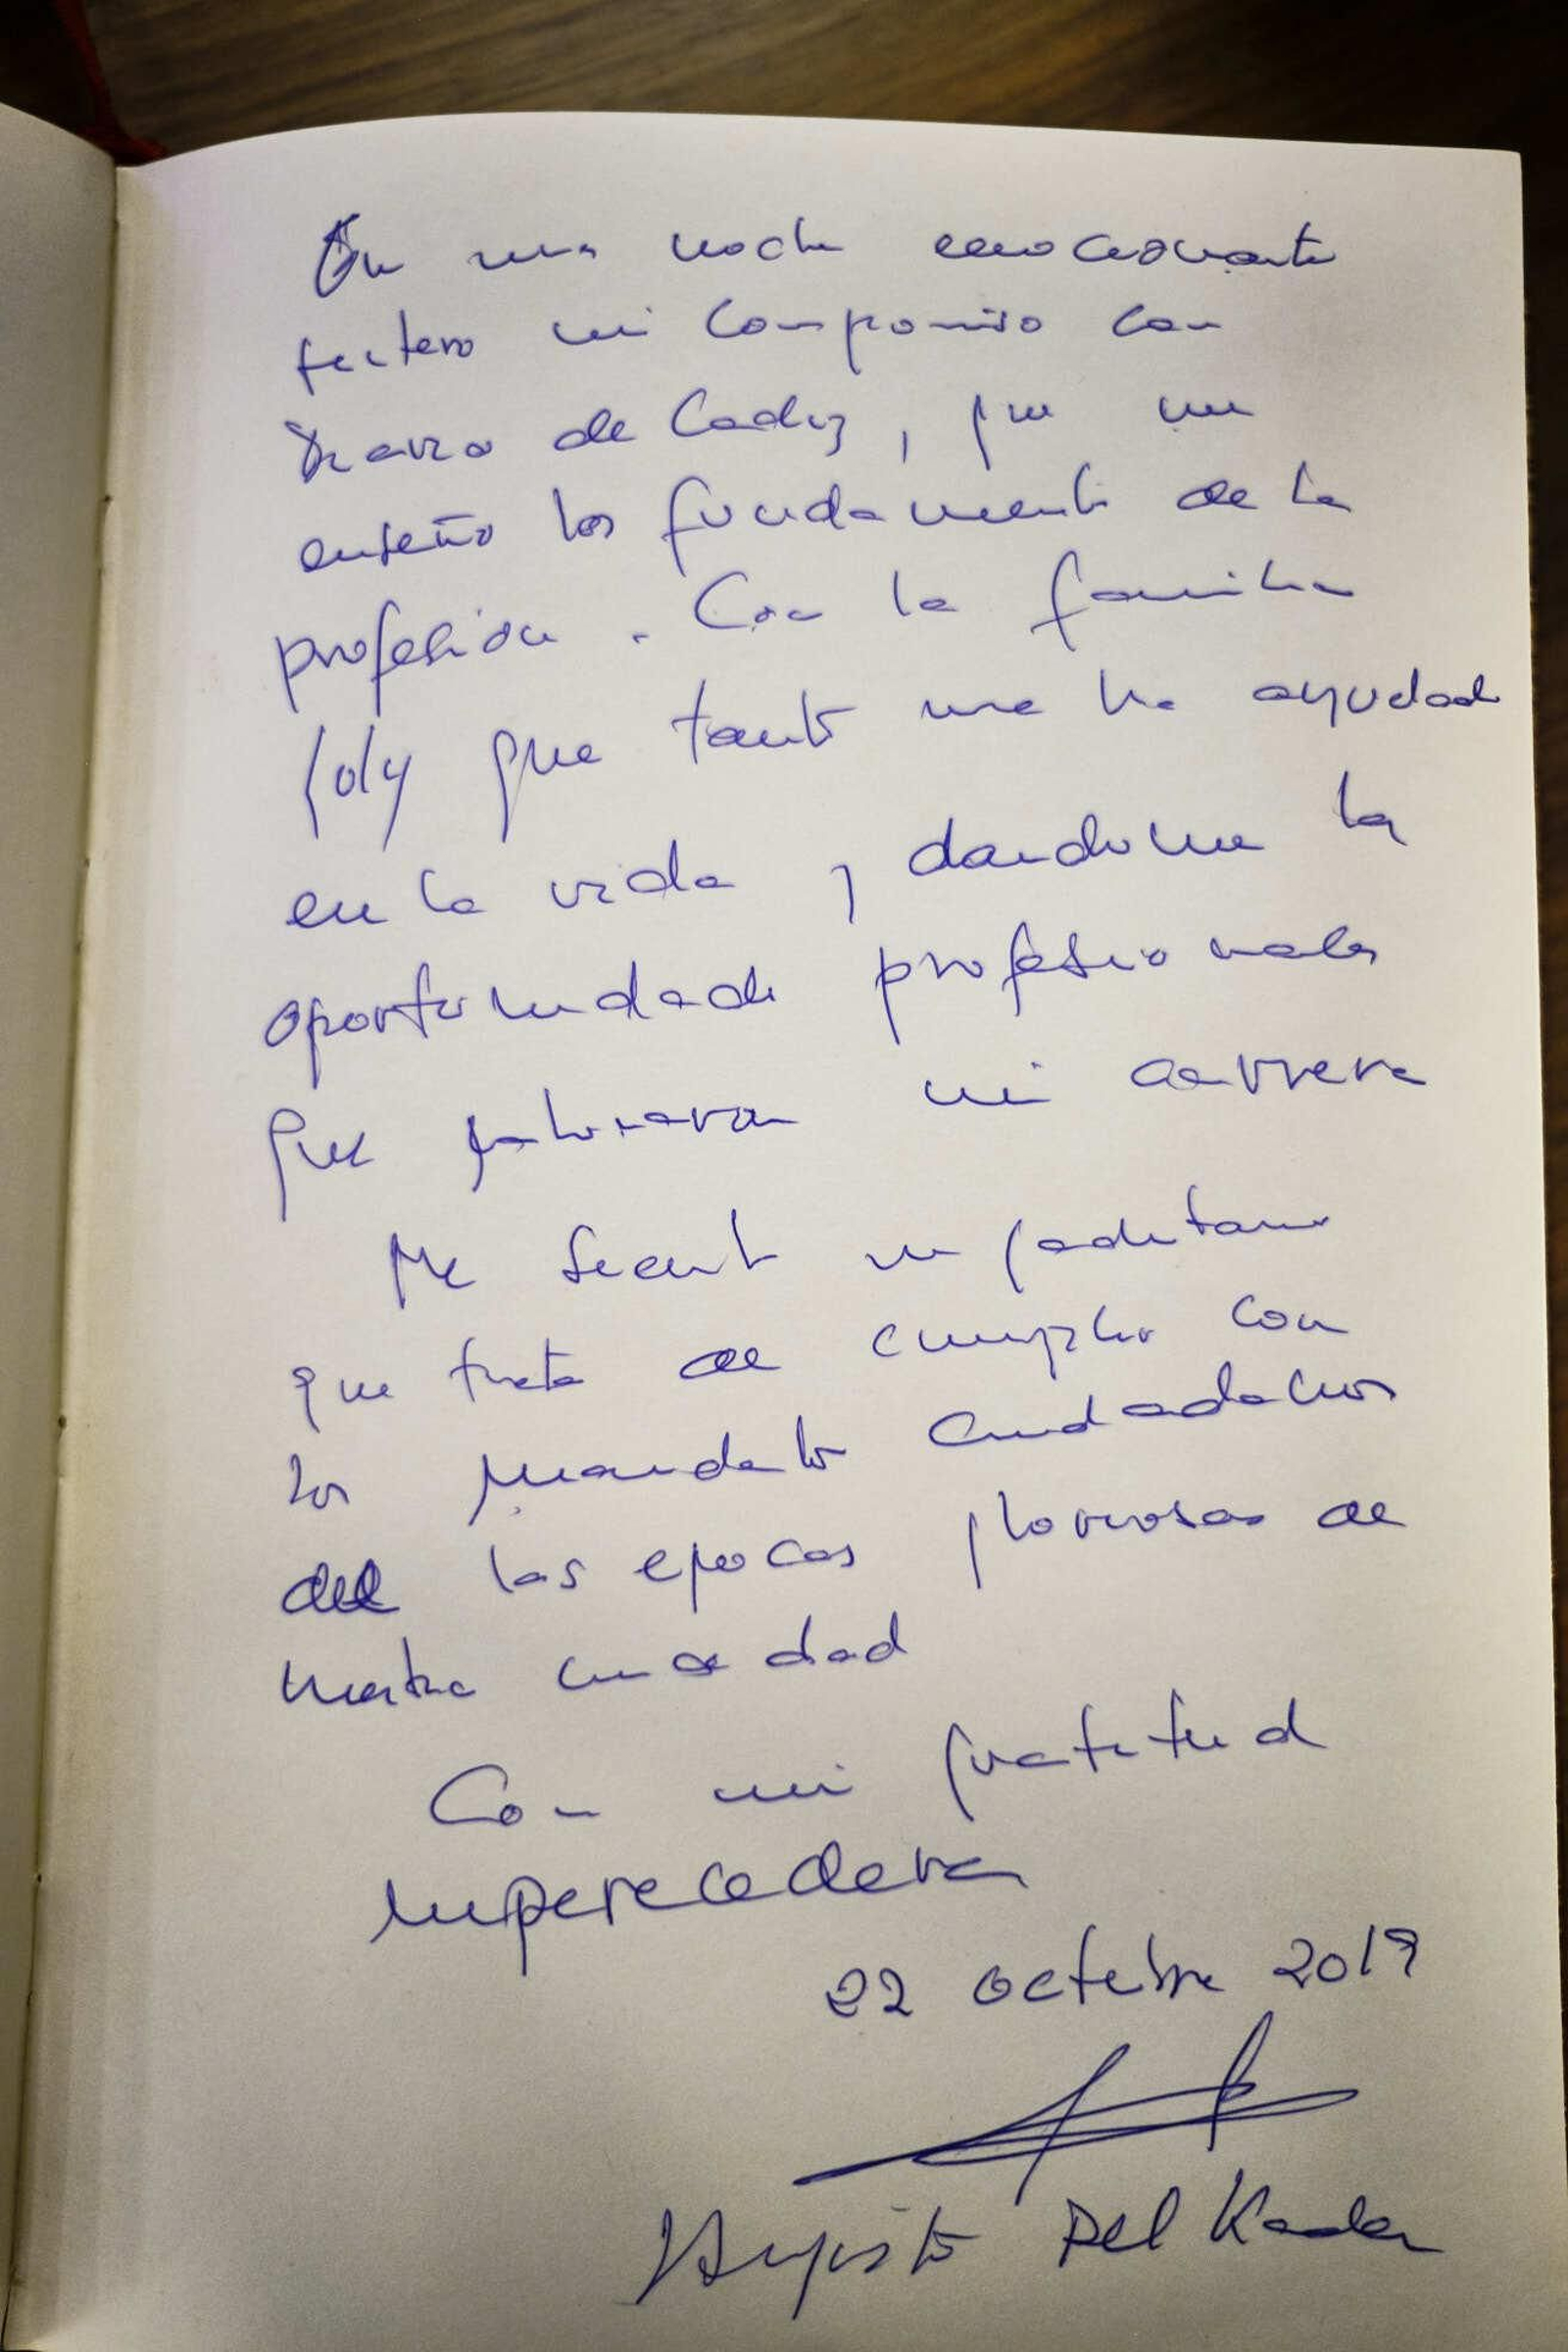 En una noche emocionante
reitero mi compromiso con
Diario de Cadiz, que me
enseño los fundamentos de la
profesión. Con la familia
Joly que tanto me ha ayudado
en la vida, dandome las
oportunidades profesionales
que jalonaron mi carrera
Me siento un gaditano
que trata de cumplir con
los mandatos ciudadanos
de las epocas gloriosas de
nuestra ciudad
Con mi gratitud
imperecedera
22 octubre 2019
Augusto Delkader